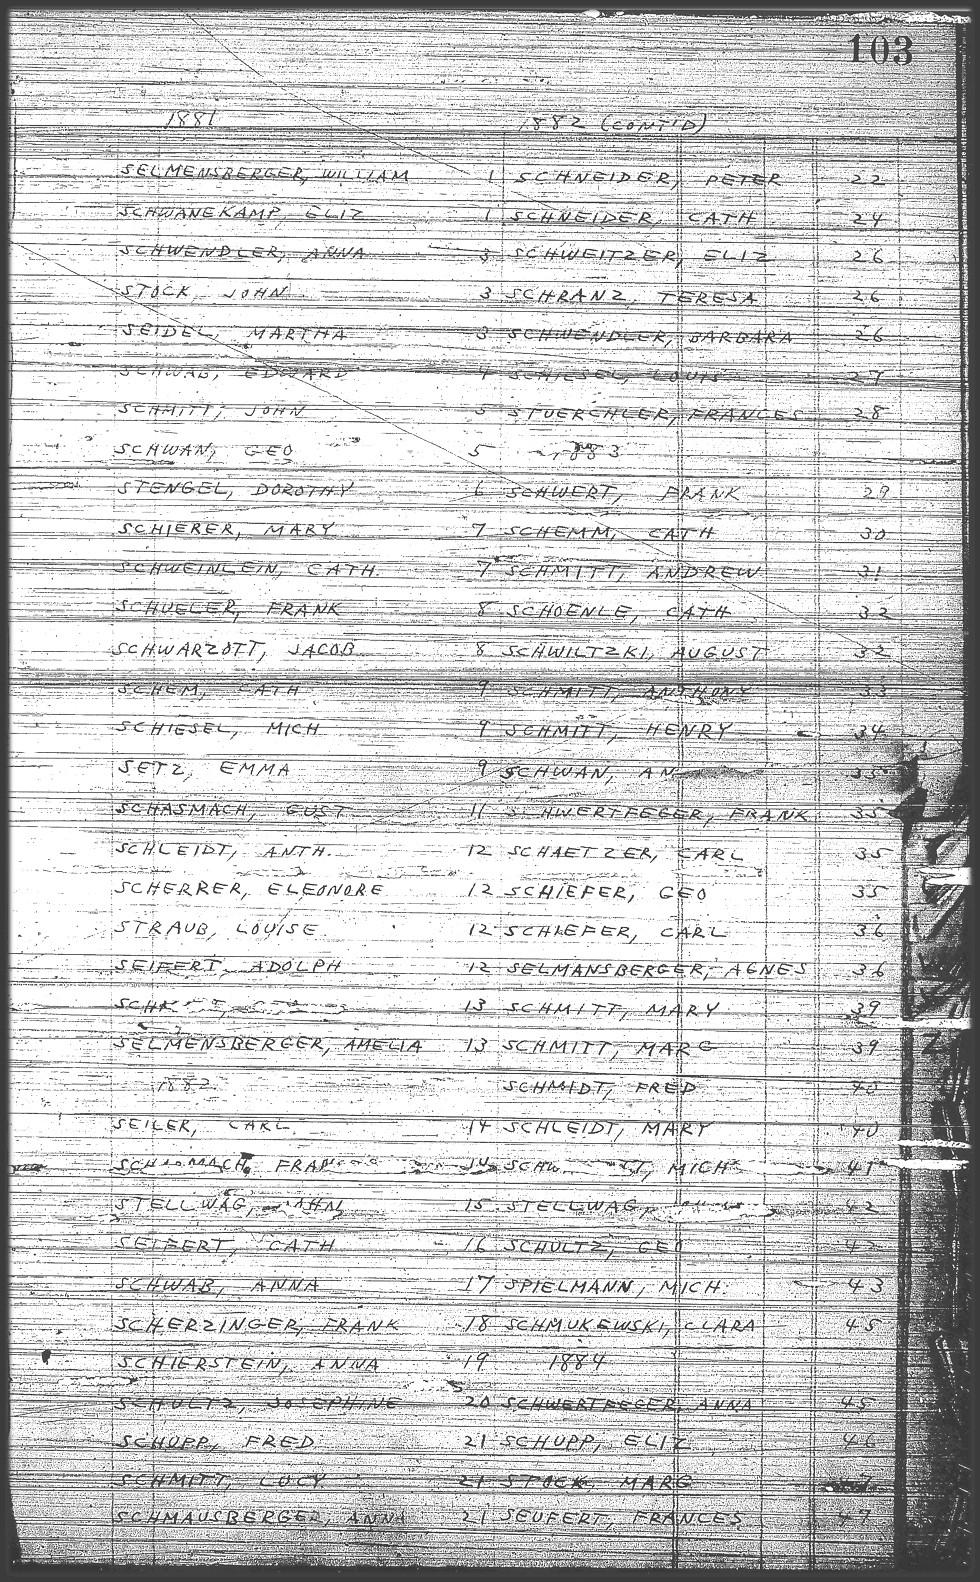 103
1881
SELMENSBERGER, WILLIAM 1
SCHWANEKAMP, ELIZ 1
SCHWENDLER, ANNA 3
STOCK, JOHN 3
SEIDEL, MARTHA 3
SCHWAB, EDWARD 4
SCHMITT, JOHN 5
SCHWAN, GEO 5
STENGEL, DOROTHY 6
SCHIERER, MARY 7
SCHWEINLEIN, CATH. 7
SCHUELER, FRANK 8
SCHWARZOTT, JACOB 8
SCHEM, CATH 9
SCHIESEL, MICH 9
SETZ, EMMA 9
SCHASMACH, GUST 11
SCHLEIDT, ANTH. 12
SCHERRER, ELEONORE 12
STRAUB, LOUISE 12
SEIFERT, ADOLPH 12
13
SELMENSBERGER, AMELIA 13
1882
SEILER, CARL 14
14
STELLWAG, 15
SEIFERT, CATH 16
SCHWAB, ANNA 17
SCHERZINGER, FRANK 18
SCHIERSTEIN, ANNA 19
SCHULTZ, JOSEPHINE 20
SCHUPP, FRED 21
SCHMITT, LUCY 21
SCHMAUSBERGER, ANNA 21
1882 (CONT'D)
SCHNEIDER, PETER 22
SCHNEIDER, CATH 24
SCHWEITZER, ELIZ 26
SCHRANZ, TERESA 26
SCHWENDLER, BARBARA 26
SCHIESEL, LOUIS 27
STUERCHLER, FRANCES 28
1883
SCHWERT, FRANK 29
SCHEMM, CATH 30
SCHMITT, ANDREW 31
SCHOENLE, CATH 32
SCHWILTZKI, AUGUST 32
SCHMITT, ANTHONY 33
SCHMITT, HENRY 34
SCHWAN, 35
SCHWERTFEGER, FRANK 35
SCHAETZER, CARL 35
SCHIEFER, GEO 35
SCHIEFER, CARL 36
SELMANSBERGER, AGNES 36
SCHMITT, MARY 39
SCHMITT, MARG 39
SCHMIDT, FRED 40
SCHLEIDT, MARY 40
MICH 41
STELLWAG, 42
SCHULTZ, GEO 42
SPIELMANN, MICH. 43
SCHMUKEWSKI, CLARA 45
1884
SCHWERTFEGER, ANNA 45
SCHUPP, ELIZ 46
STOCK, MARG
SEUFERT, FRANCES 47